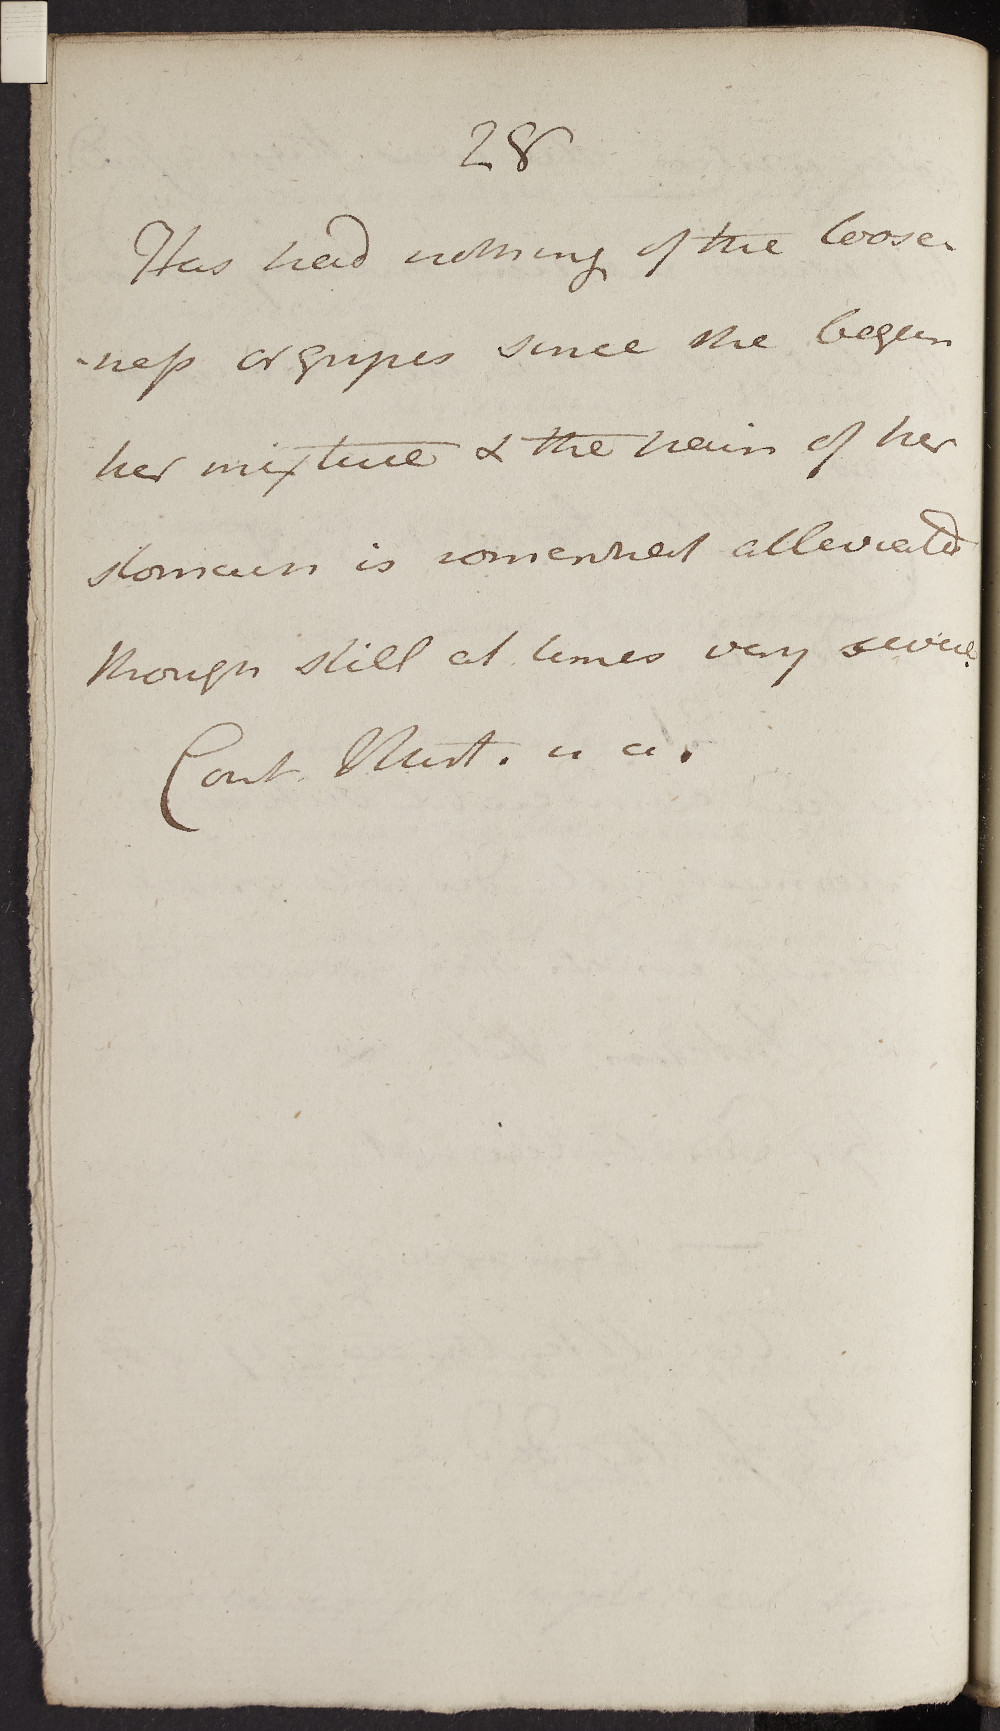 28
Has had nothing of the loose-
-neſs or gripes since she began
her mixture & the pain of her
stomach is somewhat alleviated
though still at times very severe.
Cont. Mist. u a.